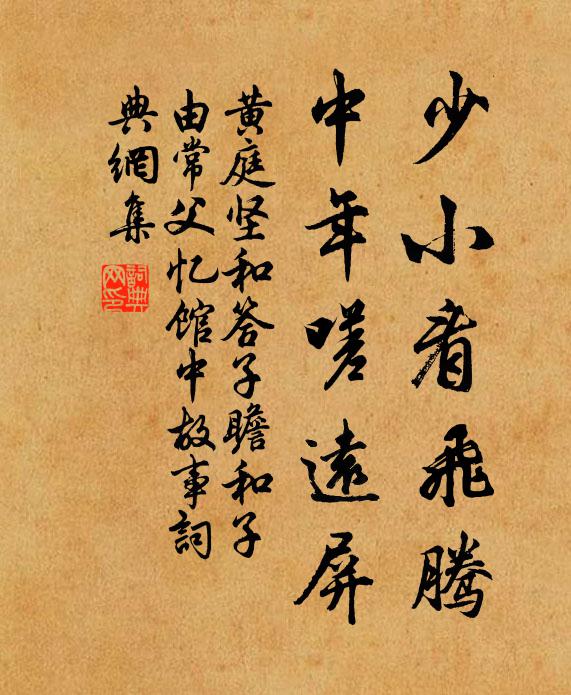 少小看飛騰
中年嗟遠屏
黄庭坚和答子瞻和子
由常父忆馆中故事詞
典網集
詞典
网印